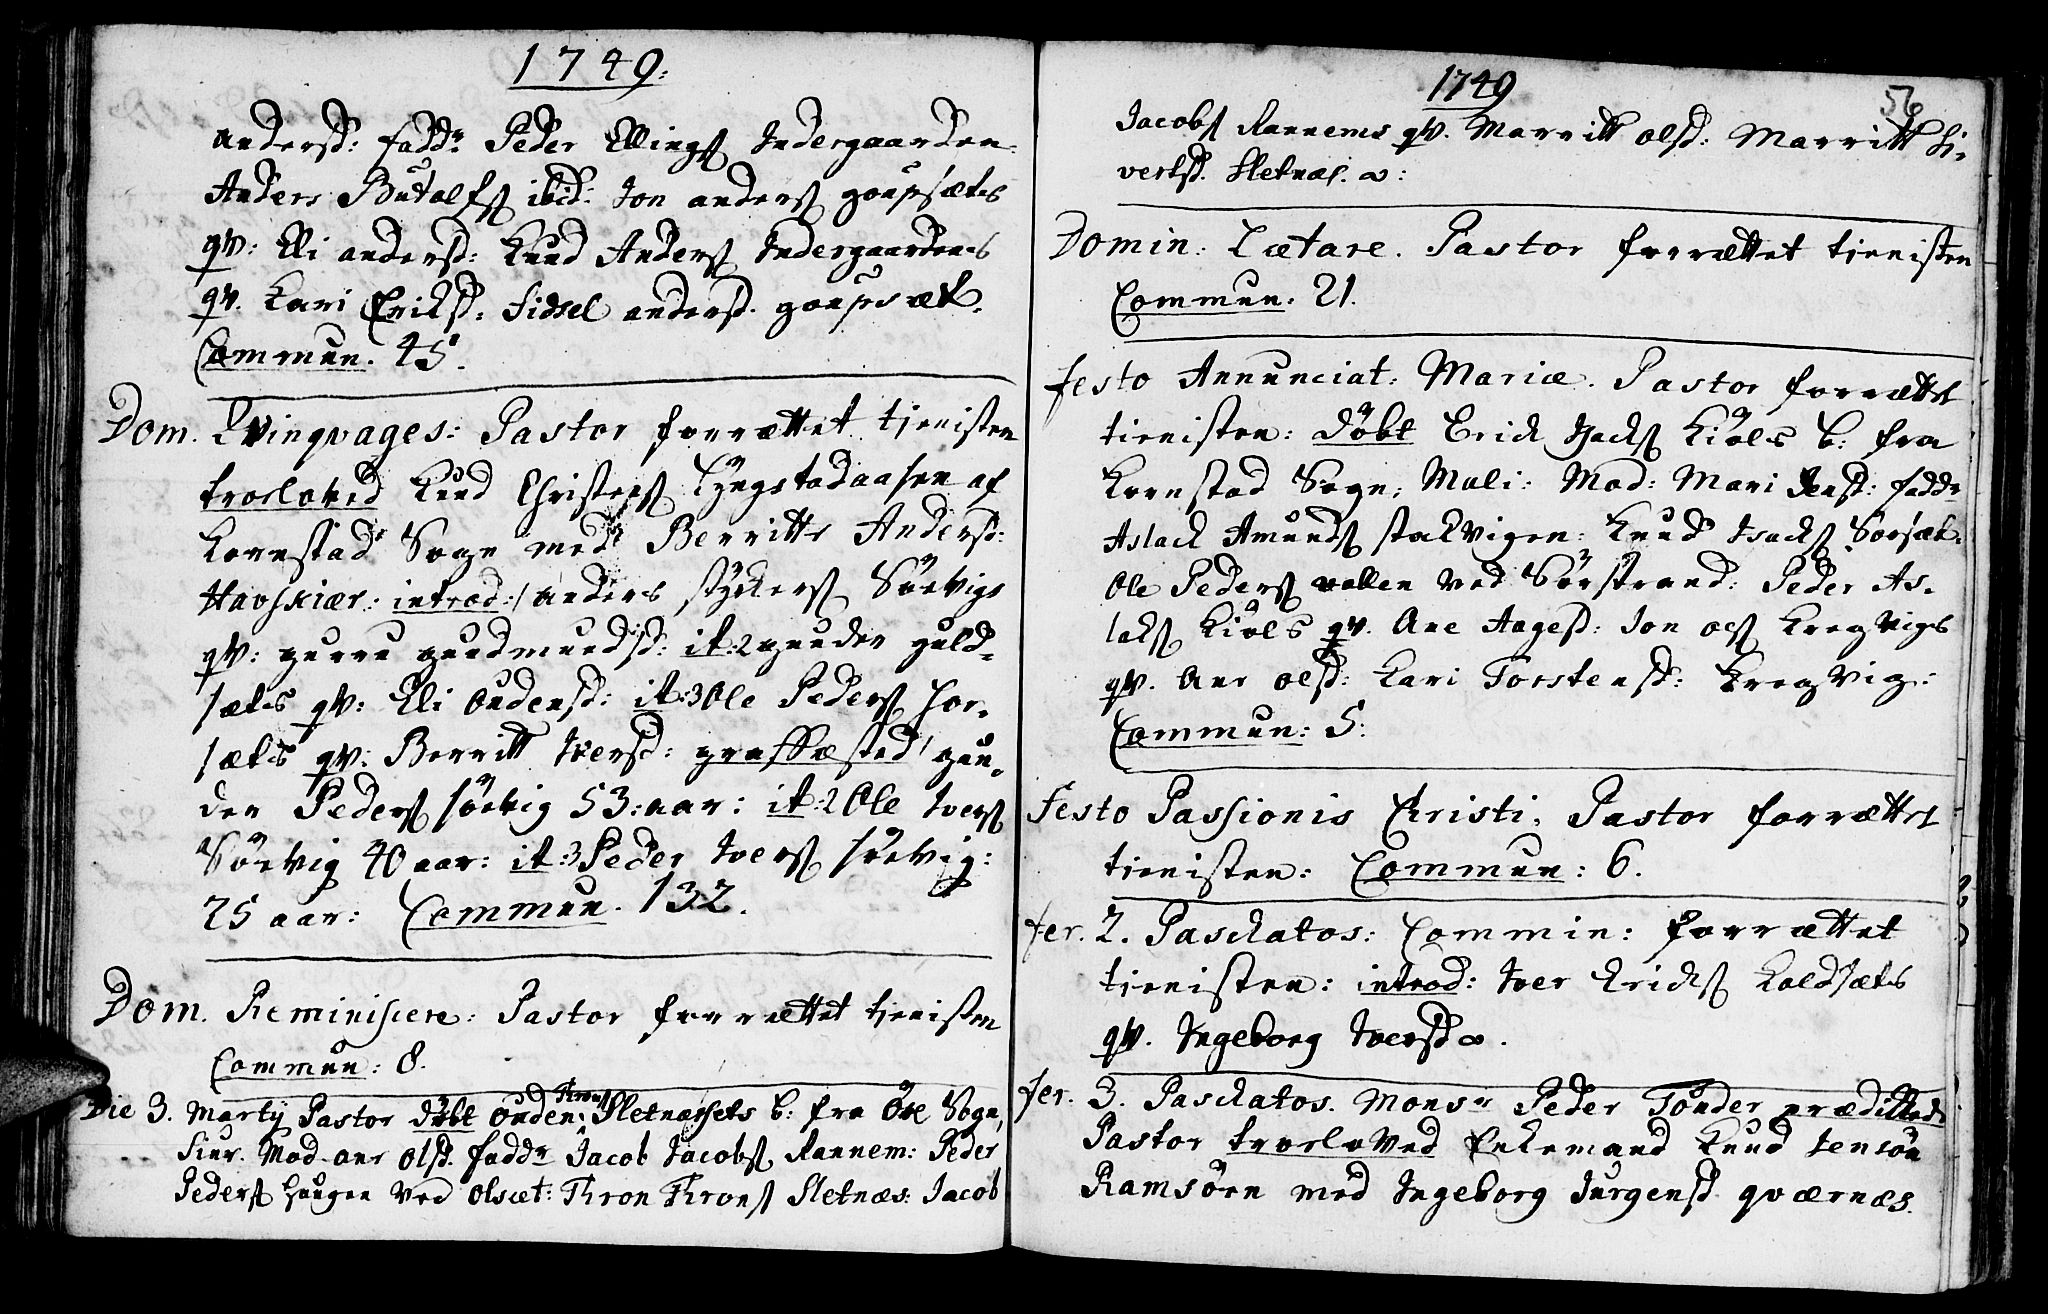 1749.
Andersd: fadd: Peder Ellings Indergaarden.
Anders Butolfs ibid: Jon anders goupsæts
qv: Eli andersd: Knud Anders Indergaardens
qv. Kari Eriksd: Sidsel andersd. goupsæt.
Commun. 45.
Dom. Qvinqvages: Pastor forrættet tienisten
troeloved Knud Christens Lyngstadaasen af
Kornstad Sogn med Berritte Andersd:
Havskiær: introd: anders Sörvigs
qv: gurru gundmundsd: it:2 gunder guld-
sæts qv: Eli Oudensd: it:3 Ole Peders hor-
sæts qv: Berritt Iversd: graffæsted gun-
der Peders sörvig 53: aar: it:2 Ole Ivers
Sörvig 40 aar: it:3 Peder Ivers sörvig:
25 aar: Commun. 132.
Dom. Reminiscere: Pastor forrættet tienisten
Commun: 8.
Die 3. Martij Pastor döbt Ouden Trons Sletnæssets b: fra Öre Sogn,
Mod. ane Olsd. fadd: Jacob Jacobs Rannem: Peder
Peders haugen ved Olsæt: Thron Throns Sletnæs: Jacob
1749
56
Jacobs Rannems qv. Marritt Olsd: Marritt Si-
vertsd. Sletnæs.
Domin: Lætare. Pastor forrættet tienisten
Commun. 21.
Festo Annunciat: Mariæ. Pastor forrættet
tienisten: döbt Erick Isacks Kiöls b: fra
Kornstad Sogn: Mali: Mod: Mari Jensd: fadd:
Aslack Amunds stakvigen: Knud Isacks Sorsæt.
Ole Peders vollen ved Sörstrand: Peder As-
laks Kiöls qv. Ane Aagesd: Jon ols Kregvigs
qv. Ane olsd: Kari Torstensd: Kregvig:
Commun: 5:
Festo Passionis Christi, Pastor forrættet
tienisten: Commun: 6.
Fer. 2. Paschatos: Commin: forrættet
tienisten: introd: Iver Ericks Koldsæts
qv. Ingeborg Iversd.
Fer. 3. Paschatos. Monsr Peder Tönder prædikede
Pastor troeloved Enkemand Knud Jensön
Ramsöen med Ingeborg Jurgensd. qværnæs.